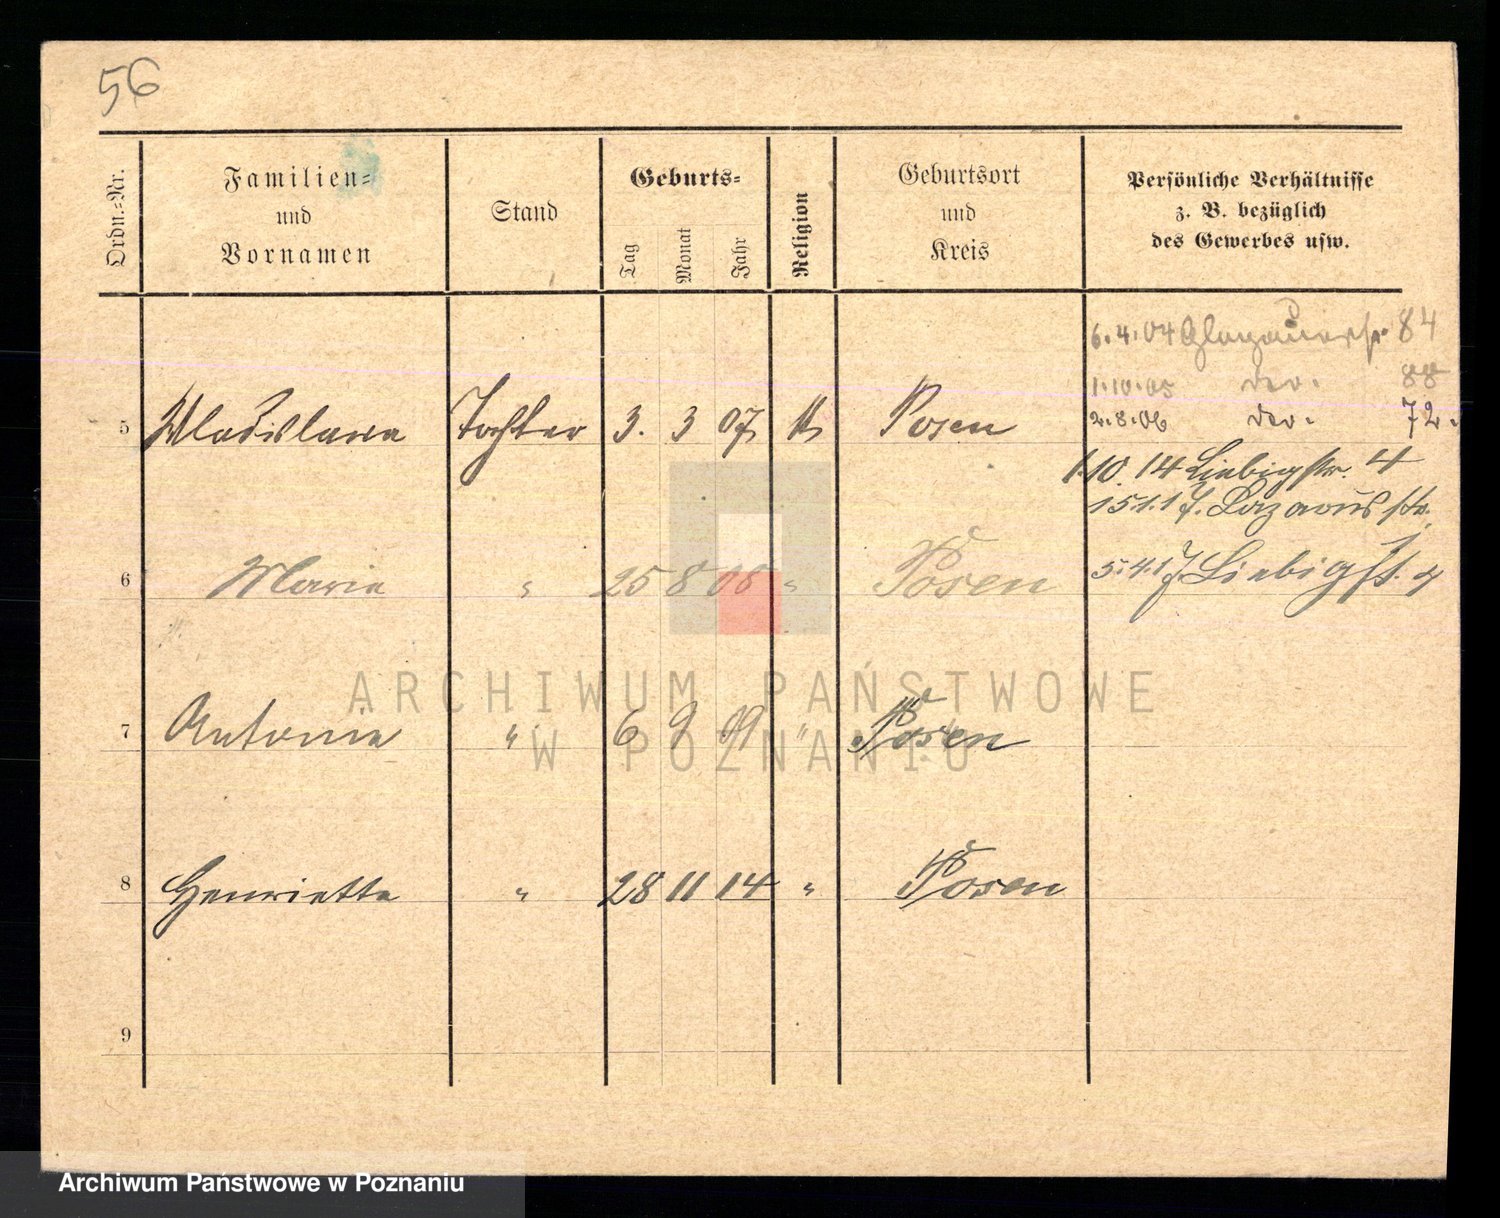 56
Ordn.=Nr.
Familien=
und
Vornamen
Stand
Geburts=
Tag
Monat
Jahr
Religion
Geburtsort
und
Kreis
Persönliche Verhältnisse
z. B. bezüglich
des Gewerbes usw.
6.4.04 Glogauerstr. 84
1.10.05 do. 88
2.8.06 do. 72.
5 Wladislawa Tochter 3. 3 07 k Posen
1.10.14 Liebigstr. 4
15.1.17. Lazarusstr.
6 Marie " 25 8 08 " Posen
5.4.17. Liebigst.
7 Antonie " 6 9 09 " Posen
8 Henriette " 28 11 14 " Posen
9
ARCHIWUM PAŃSTWOWE
W POZNANIU
Archiwum Państwowe w Poznaniu